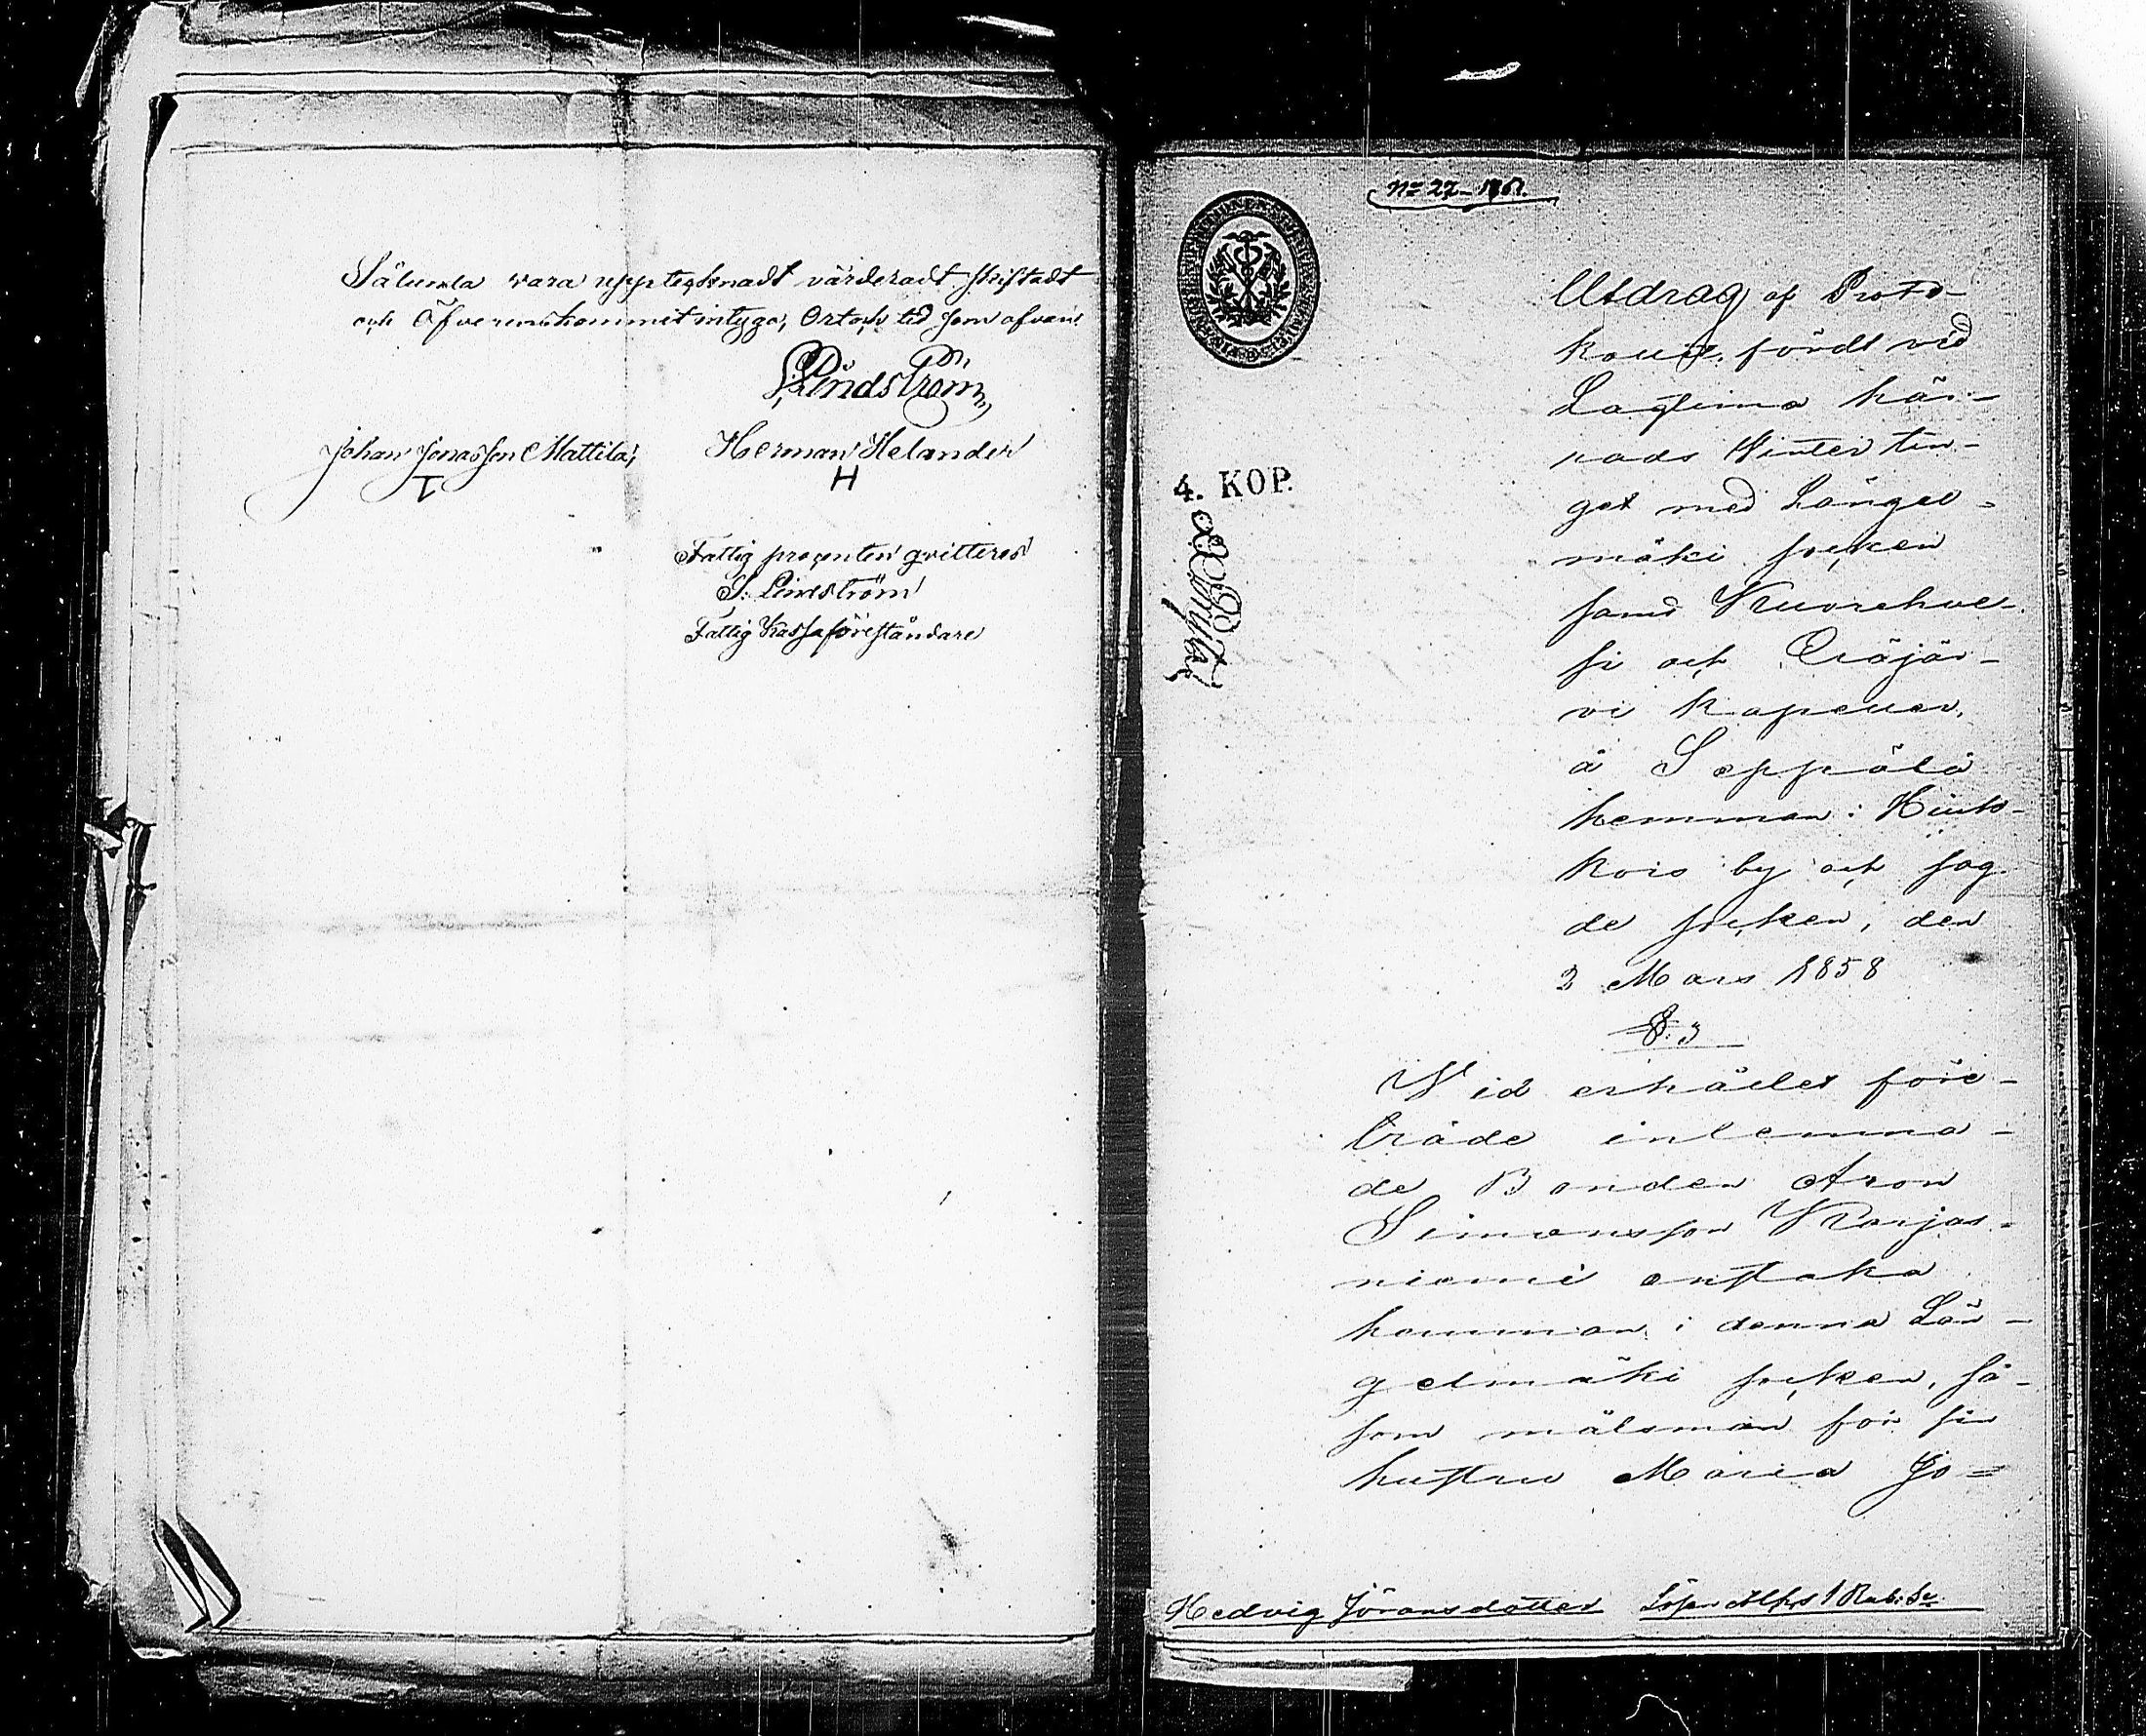 Sålunda vara upptecknadt värderadt skiftadt
och öfverenskommit intyga, Ort och tid som ofvan.
S. Lindström
Johan Jonasson Mattila, Herman Helander
T H
Fattig procenten qvitteras
S. Lindström
Fattig Kassaföreståndare
No 27
4. KOP.
Utdrag af Proto-
kollet, fördt vid
Lagtima hä-
rads Wintertin-
get med Längel-
mäki socken
samt Kuorehve-
si och Eräjär-
vi kapeller,
å Seppälä
hemman i Hiuk-
kois by och sag-
de socken, den
2 Mars 1858
§. 3
Wid erhållet före-
träde inlemna-
de Bonden Aron
Simonsson Karjas-
niemi enstaka
hemman i denna Län-
gelmäki socken, så-
som målsman för sin
hustru Maria Jo-
Hedvig Göransdotter Lösen 1 Rub. Sr.